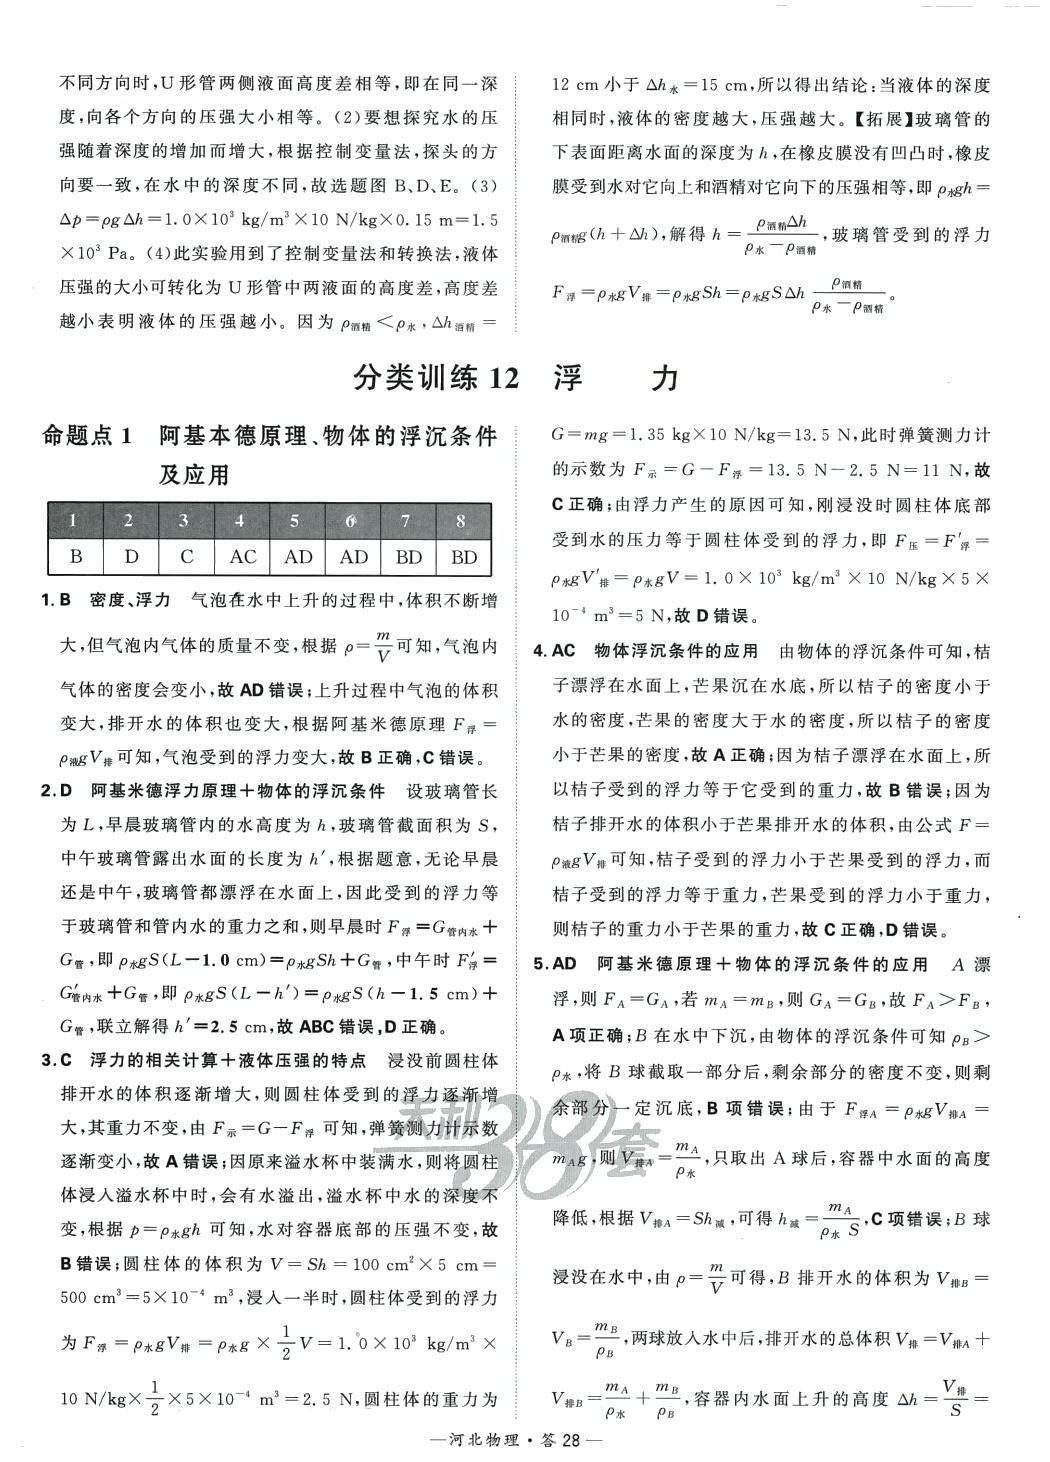 不同方向时,U 形管两侧液面高度差相等,即在同一深
度,向各个方向的压强大小相等。(2)要想探究水的压
强随着深度的增加而增大,根据控制变量法,探头的方
向要一致,在水中的深度不同,故选题图 B、D、E。(3)
Δp=ρgΔh=1.0×10³ kg/m³×10 N/kg×0.15 m=1.5
×10³ Pa。(4)此实验用到了控制变量法和转换法,液体
压强的大小可转化为 U 形管中两液面的高度差,高度差
越小表明液体的压强越小。因为 ρ酒精<ρ水,Δh酒精=
12 cm 小于 Δh水=15 cm,所以得出结论:当液体的深度
相同时,液体的密度越大,压强越大。【拓展】玻璃管的
下表面距离水面的深度为 h,在橡皮膜没有凹凸时,橡皮
膜受到水对它向上和酒精对它向下的压强相等,即 ρ水gh=
ρ酒精g(h+Δh),解得 h=ρ酒精Δh/(ρ水-ρ酒精),玻璃管受到的浮力
F浮=ρ水gV排=ρ水gSh=ρ水gSΔh ρ酒精/(ρ水-ρ酒精)。
分类训练 12 浮 力
命题点 1 阿基本德原理、物体的浮沉条件
及应用
1 2 3 4 5 6 7 8
B D C AC AD AD BD BD
1. B 密度、浮力 气泡在水中上升的过程中,体积不断增
大,但气泡内气体的质量不变,根据 ρ=m/V可知,气泡内
气体的密度会变小,故 AD 错误;上升过程中气泡的体积
变大,排开水的体积也变大,根据阿基米德原理 F浮=
ρ液gV排可知,气泡受到的浮力变大,故 B 正确,C 错误。
2. D 阿基米德浮力原理+物体的浮沉条件 设玻璃管长
为 L,早晨玻璃管内的水高度为 h,玻璃管截面积为 S,
中午玻璃管露出水面的长度为 h′,根据题意,无论早晨
还是中午,玻璃管都漂浮在水面上,因此受到的浮力等
于玻璃管和管内水的重力之和,则早晨时 F浮=G管内水+
G管,即 ρ水gS(L-1.0 cm)=ρ水gSh+G管,中午时 F′浮=
G′管内水+G管,即 ρ水gS(L-h′)=ρ水gS(h-1.5 cm)+
G管,联立解得 h′=2.5 cm,故 ABC 错误,D 正确。
3. C 浮力的相关计算+液体压强的特点 浸没前圆柱体
排开水的体积逐渐增大,则圆柱体受到的浮力逐渐增
大,其重力不变,由 F示=G-F浮 可知,弹簧测力计示数
逐渐变小,故 A 错误;因原来溢水杯中装满水,则将圆柱
体浸入溢水杯中时,会有水溢出,溢水杯中水的深度不
变,根据 p=ρ水gh 可知,水对容器底部的压强不变,故
B 错误;圆柱体的体积为 V=Sh=100 cm²×5 cm=
500 cm³=5×10⁻⁴ m³,浸入一半时,圆柱体受到的浮力
为 F浮=ρ水gV排=ρ水g×1/2V=1.0×10³ kg/m³×
10 N/kg×1/2×5×10⁻⁴ m³=2.5 N,圆柱体的重力为
G=mg=1.35 kg×10 N/kg=13.5 N,此时弹簧测力计
的示数为 F示=G-F浮=13.5 N-2.5 N=11 N,故
C 正确;由浮力产生的原因可知,刚浸没时圆柱体底部
受到水的压力等于圆柱体受到的浮力,即 F压=F′浮=
ρ水gV′排=ρ水gV=1.0×10³ kg/m³×10 N/kg×5×
10⁻⁴ m³=5 N,故 D 错误。
4. AC 物体浮沉条件的应用 由物体的浮沉条件可知,桔
子漂浮在水面上,芒果沉在水底,所以桔子的密度小于
水的密度,芒果的密度大于水的密度,所以桔子的密度
小于芒果的密度,故 A 正确;因为桔子漂浮在水面上,所
以桔子受到的浮力等于它受到的重力,故 B 错误;因为
桔子排开水的体积小于芒果排开水的体积,由公式 F=
ρ液gV排可知,桔子受到的浮力小于芒果受到的浮力,而
桔子受到的浮力等于重力,芒果受到的浮力小于重力,
则桔子的重力小于芒果的重力,故 C 正确,D 错误。
5. AD 阿基米德原理+物体的浮沉条件的应用 A 漂
浮,则 FA=GA,若 mA=mB,则 GA=GB,故 FA>FB,
A 项正确;B 在水中下沉,由物体的浮沉条件可知 ρB>
ρ水,将 B 球截取一部分后,剩余部分的密度不变,则剩
余部分一定沉底,B 项错误;由于 F浮A=ρ水gV排A=
mAg,则 V排A=mA/ρ水,只取出 A 球后,容器中水面的高度
降低,根据 V排A=Sh减,可得 h减=mA/(ρ水S),C 项错误;B 球
浸没在水中,由 ρ=m/V可得,B 排开水的体积为 V排B=
VB=mB/ρB,两球放入水中后,排开水的总体积 V排=V排A+
V排B=mA/ρ水+mB/ρB,容器内水面上升的高度 Δh=V排/S=
天利38套
—河北物理·答 28—